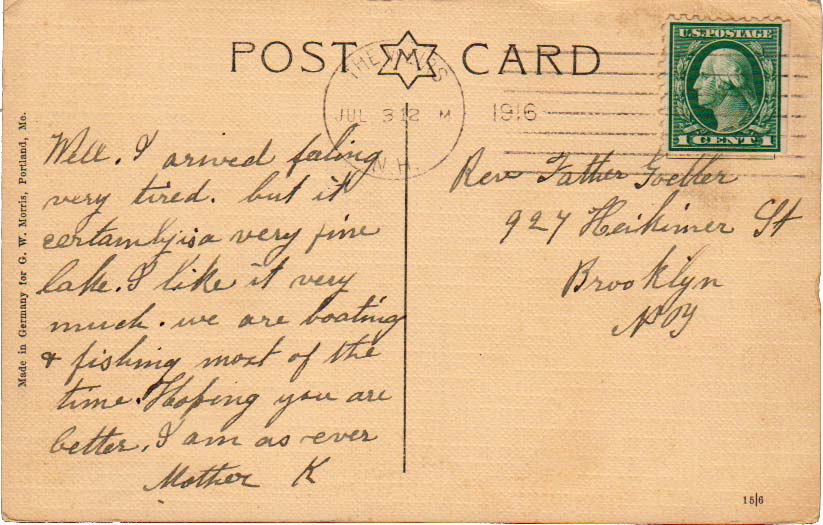 POST M CARD
THE WEIRS
JUL 3 12 M 1916
N.H.
U.S. POSTAGE
1 CENT 1
Well. I arived faling
very tired. but it
certainly is a very fine
lake. I like it very
much. we are boating
& fishing most of the
time. Hoping you are
better, I am as ever
Mother K
Rev Father Goeller
927 Herkimer St
Brooklyn
N Y
Made in Germany for G. W. Morris, Portland, Me.
15|6